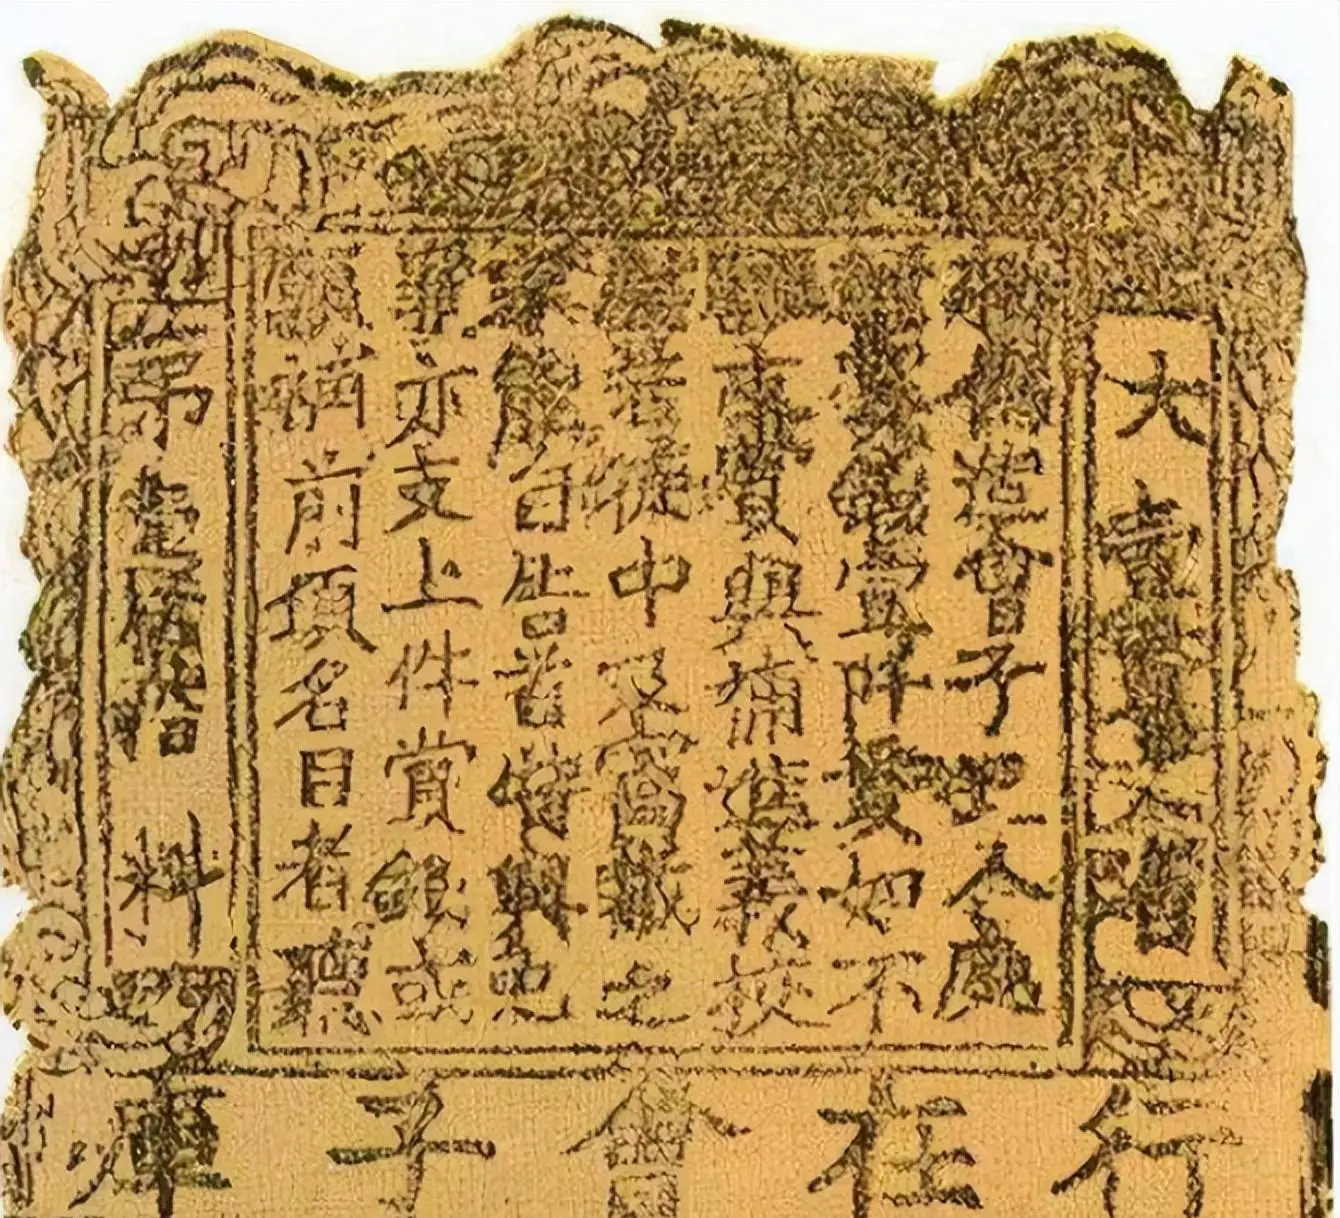 大壹貫
偽造會子犯人處
賞錢壹阡貫如不
賞與補進義校
若徒中及窩藏之
家能自告首特與免
罪亦支上件賞錢或
願補前項名目者聽
壹佰拾料
行在會子庫